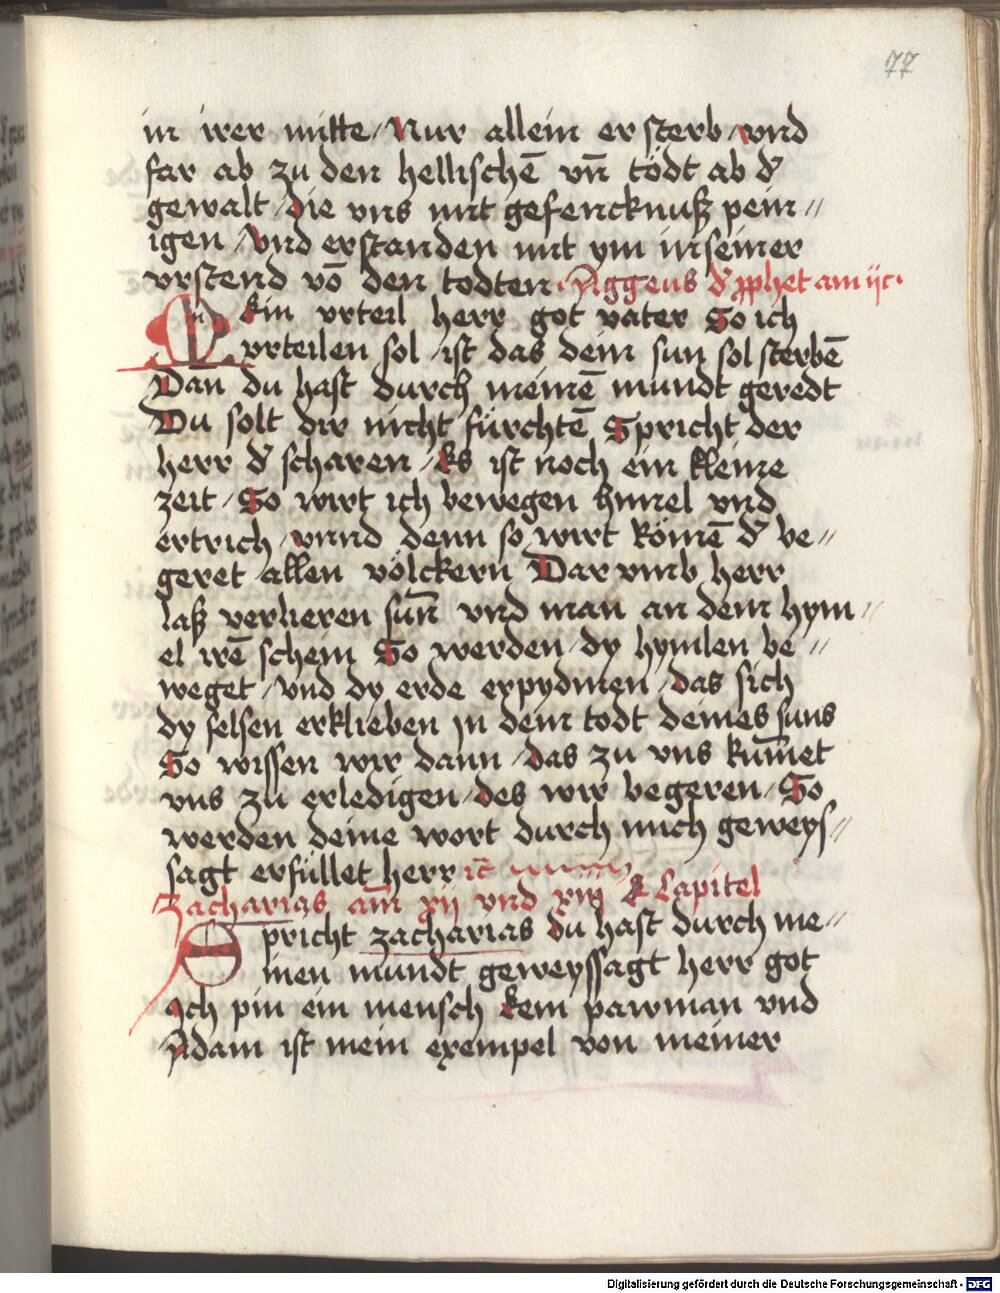 77
in irer mitte / Nur allein er sterb / vnd
far ab zu den hellischē vn̄ tödt ab d̕
gewalt / die vns mit gefencknuß pein〃
igen / Vnd erstanden mit ym in seiner
vrstend vō den todten · Aggeus d̕ ꝓphet am ijc ·
Ein vrteil herr got vater So ich
vrteilen sol / ist das dein sun sol sterbē
Dan du hast durch meinē mundt geredt
Du solt dir nicht fürchtē Spricht der
herr d̕ scharen / Es ist noch ein kleine
zeit / So wirt ich bewegen himel vnd
ertrich / vnnd denn so wirt kömē d̕ be〃
geret allen völckern Dar vmb herr
laß verlieren sūn vnd man an dem hym〃
el irē schein So werden dy hymlen be〃
weget / vnd dy erde erpydmen / das sich
dy felsen erklieben in dem todt deines suns
So wissen wir dann / das zu vns kum̄et
vns zu erledigen / des wir begeren / So
werden deine wort durch mich geweys〃
sagt erfüllet herr ic̄
Zacharias am̄ xij vnd xiij Capitel
Spricht zacharias du hast durch me〃
inen mundt geweyssagt herr got
Ich pin ein mensch kein pawman vnd
Adam ist mein exempel von meiner
Digitalisierung gefördert durch die Deutsche Forschungsgemeinschaft - DFG